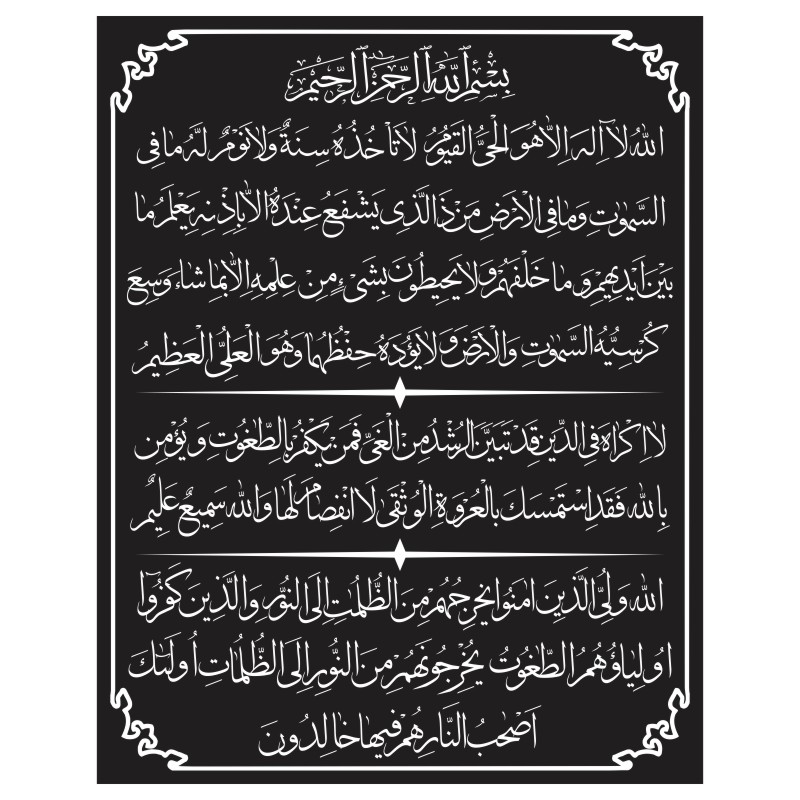 بِسْمِ ٱللَّهِ ٱلرَّحْمَٰنِ ٱلرَّحِيمِ
اللهُ لَآ اِلٰهَ اِلَّا هُوَ الْحَىُّ الْقَيُّومُ لَا تَأْخُذُهُ سِنَةٌ وَلَا نَوْمٌ لَّهُ مَا فِى
السَّمٰوٰتِ وَمَا فِى الْاَرْضِ مَنْ ذَا الَّذِى يَشْفَعُ عِنْدَهُ اِلَّا بِاِذْنِهِ يَعْلَمُ مَا
بَيْنَ اَيْدِيهِمْ وَمَا خَلْفَهُمْ وَلَا يُحِيطُونَ بِشَىْءٍ مِنْ عِلْمِهِ اِلَّا بِمَا شَاءَ وَسِعَ
كُرْسِيُّهُ السَّمٰوٰتِ وَالْاَرْضَ وَلَا يَؤُدُهُ حِفْظُهُمَا وَهُوَ الْعَلِىُّ الْعَظِيمُ
لَا اِكْرَاهَ فِى الدِّينِ قَدْ تَبَيَّنَ الرُّشْدُ مِنَ الْغَىِّ فَمَنْ يَكْفُرْ بِالطَّغُوتِ وَيُؤْمِنْ
بِاللهِ فَقَدِ اسْتَمْسَكَ بِالْعُرْوَةِ الْوُثْقَى لَا انْفِصَامَ لَهَا وَاللهُ سَمِيعٌ عَلِيمٌ
اللهُ وَلِىُّ الَّذِينَ امَنُوا يُخْرِجُهُمْ مِنَ الظُّلُمٰتِ اِلَى النُّورِ وَالَّذِينَ كَفَرُوٓا
اَوْلِيَاؤُهُمُ الطَّاغُوتُ يُخْرِجُونَهُمْ مِنَ النُّورِ اِلَى الظُّلُمَاتِ اُولَئِكَ
اَصْحٰبُ النَّارِ هُمْ فِيهَا خَالِدُونَ